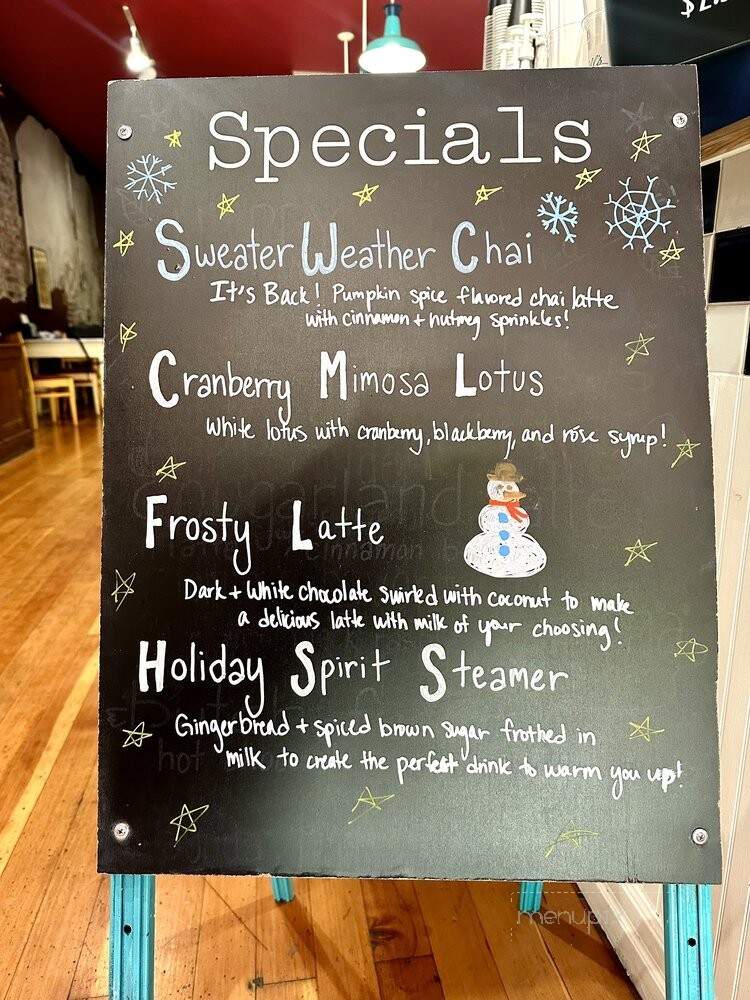 $2.
Specials
Sweater Weather Chai
It's Back! Pumpkin spice flavored chai latte
with cinnamon + nutmeg sprinkles!
Cranberry Mimosa Lotus
White lotus with cranberry, blackberry, and róse syrup!
Frosty Latte
Dark + White chocolate swirled with coconut to make
a delicious latte with milk of your choosing!
Holiday Spirit Steamer
Gingerbread + spiced brown sugar frothed in
milk to create the perfect drink to warm you up!
menupix